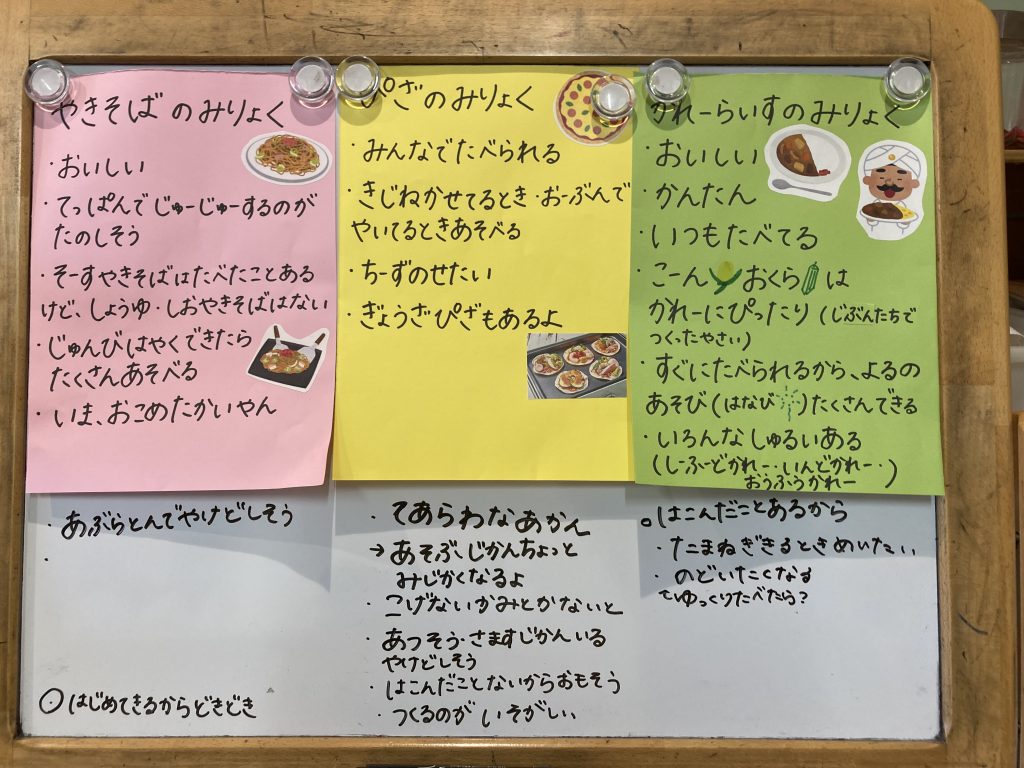 やきそばのみりょく
・おいしい
・てっぱんでじゅーじゅーするのが
たのしそう
・そーすやきそばはたべたことある
けど、しょうゆ・しおやきそばはない
・じゅんびはやくできたら
たくさんあそべる
・いま、おこめたかいやん
・あぶらとんでやけどしそう
・
○はじめてきるからどきどき
ぴざのみりょく
・みんなでたべられる
・きじねかせてるとき・おーぶんで
やいてるときあそべる
・ちーずのせたい
・ぎょうざぴざもあるよ
・てあらわなあかん
→あそぶじかんちょっと
みじかくなるよ
・こげないかみとかないと
・あつそう・さますじかんいる
やけどしそう
・はこんだことないからおもそう
・つくるのがいそがしい
かれーらいすのみりょく
・おいしい
・かんたん
・いつもたべてる
・こーん おくら は
かれーにぴったり(じぶんたちで
つくったやさい)
・すぐにたべられるから、よるの
あそび(はなび )たくさんできる
・いろんなしゅるいある
(しーふーどかれー・いんどかれー・
おうふうかれー)
○はこんだことあるから
・たまねぎきるときめいたい
・のどいたくなる
ゆっくりたべたら?